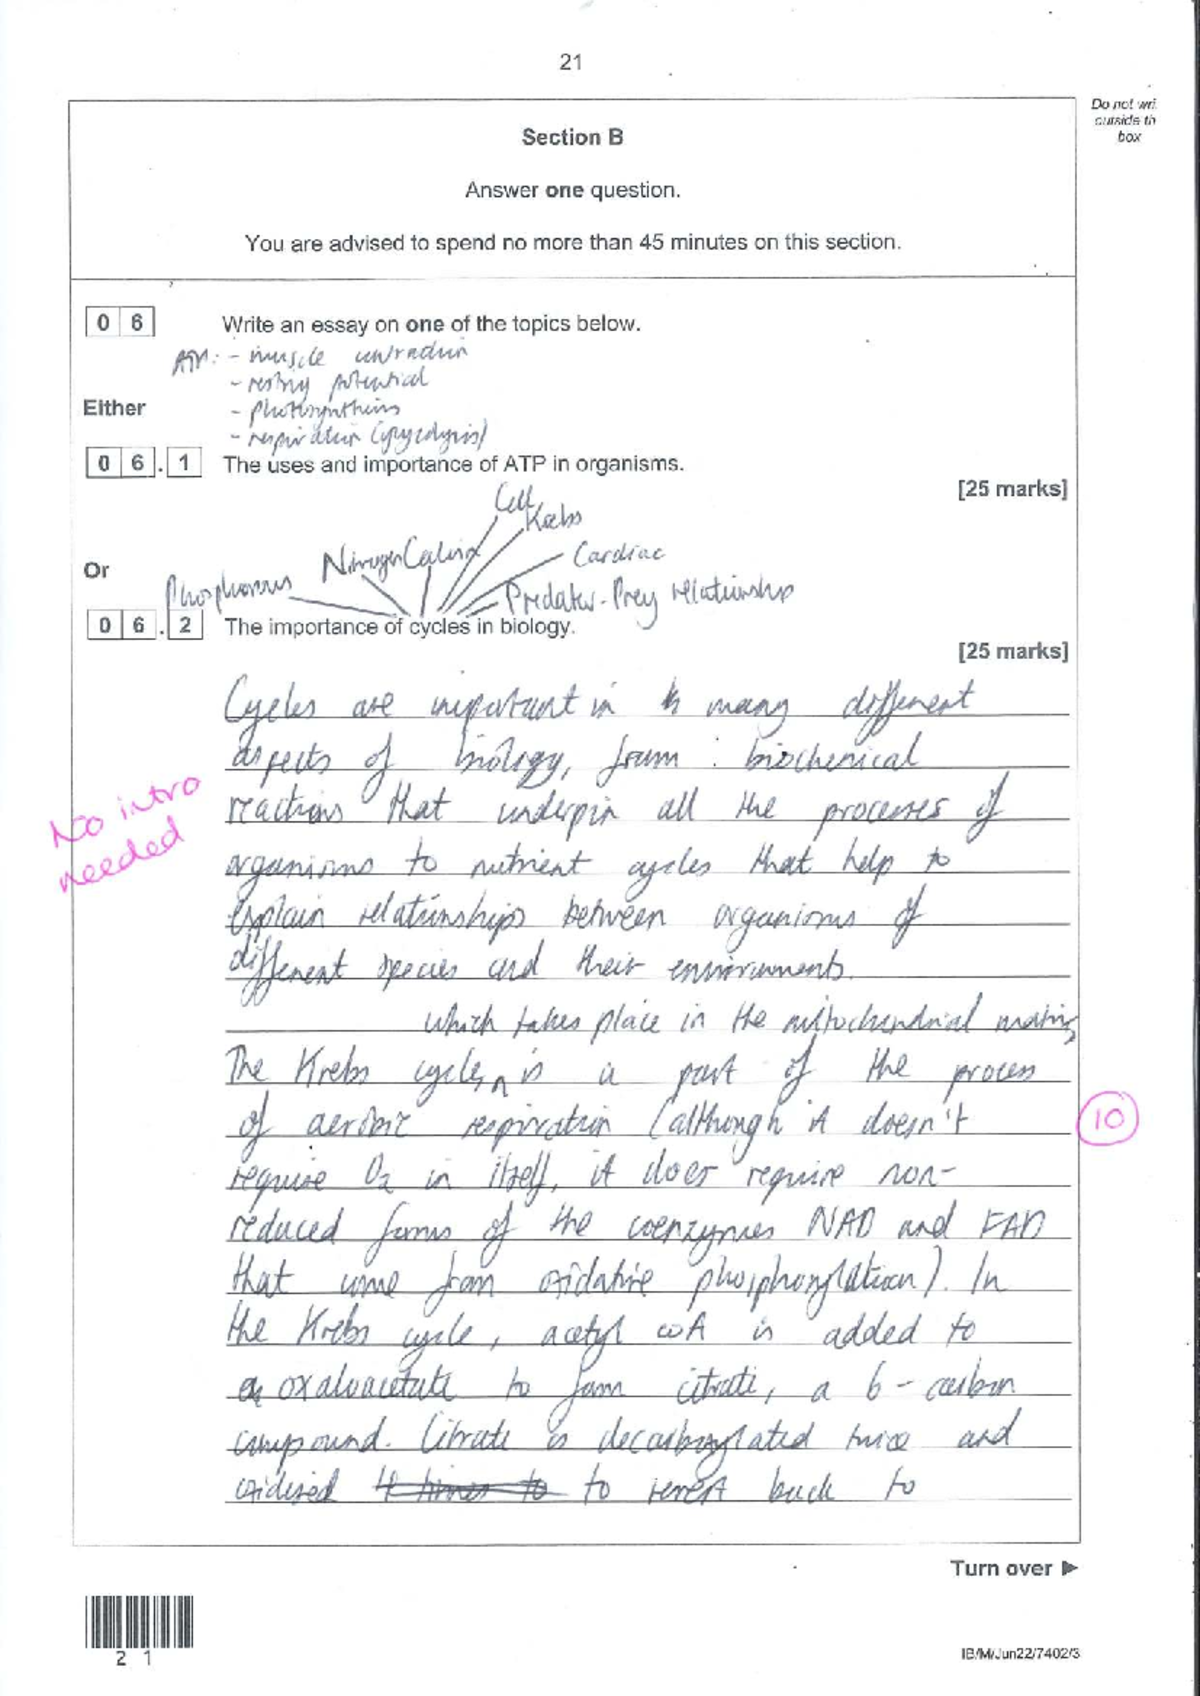 21
Do not wri
outside th
box
Section B
Answer one question.
You are advised to spend no more than 45 minutes on this section.
0 6 Write an essay on one of the topics below.
- muscle contraction
- resting potential
Either
- photosynthesis
- respiration (glycolysis)
0 6 . 1 The uses and importance of ATP in organisms.
[25 marks]
Cell
Krebs
Or
Phosphorous Nitrogen Calvin Cardiac
Predator-Prey relationship
0 6 . 2 The importance of cycles in biology.
[25 marks]
Cycles are important in many different
aspects of biology, from : biochemical
No intro
needed
reactions that underpin all the processes of
organisms to nutrient cycles that help to
explain relationships between organisms of
different species and their environments.
which takes place in the mitochondrial matrix,
The Krebs cycle, ^ is a part of the process
of aerobic respiration (although it doesn't
10
require O2 in itself, it does require non-
reduced forms of the coenzymes NAD and FAD
that come from oxidative phosphorylation). In
the Krebs cycle, acetyl coA is added to
oxaloacetate to form citrate, a 6-carbon
compound. Citrate is decarboxylated twice and
oxidised to revert back to
Turn over ►
2 1
IB/M/Jun22/7402/3